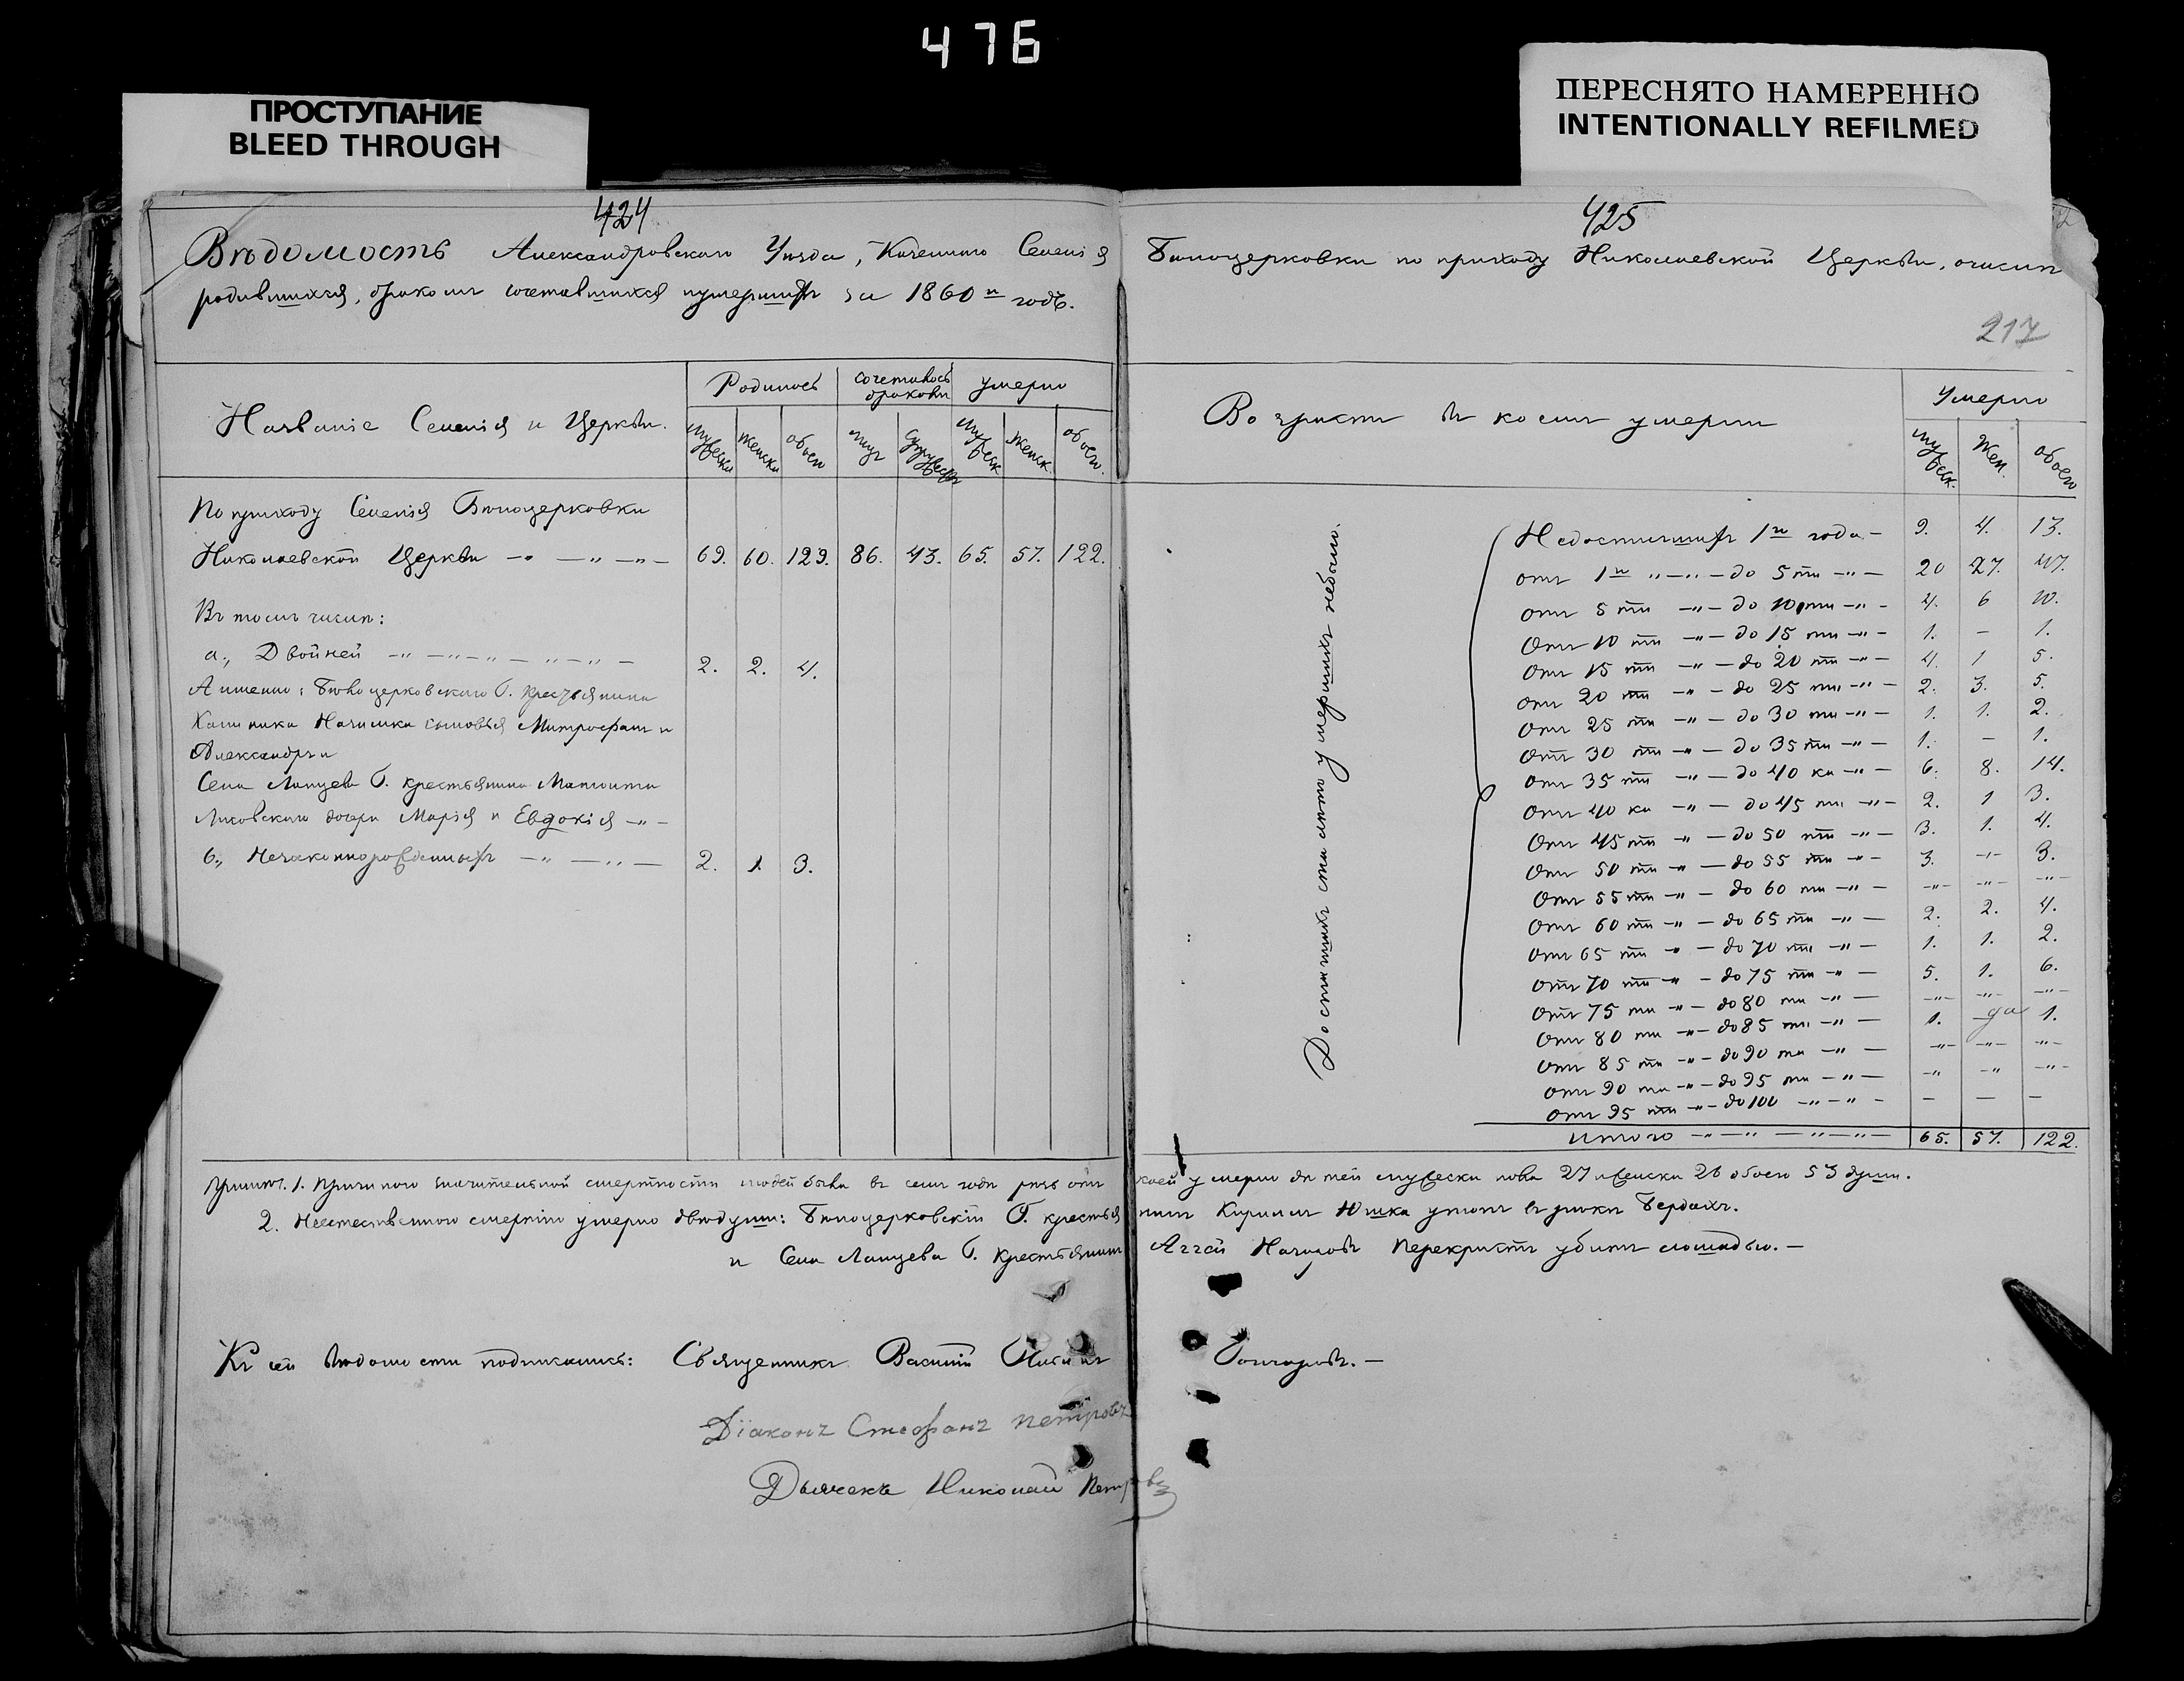 476
ПРОСТУПАНИЕ
BLEED THROUGH
ПЕРЕСНЯТО НАМЕРЕННО
INTENTIONALLY REFILMED
424
Вѣдомость Александровскаго Уѣзда, Казеннаго Селенія
родившихся, бракомъ сочетавшихся и умершихъ за 1860й годъ.
Названіе Селенія и Церкви.
Родилось
сочеталось браковъ
умерло
мужеска женска обоего лицъ супружествъ мужеск женск. обоего.
По приходу Селенія Бѣлоцерковки
Николаевской Церкви 69. 60. 129. 86. 43. 65. 57. 122.
Въ томъ числѣ:
а., Двойней 2. 2. 4.
А именно: Бѣлоцерковскаго Г. Крестьянина
сыновья Митрофанъ и
Александръ и
Села Ланцева Г. крестьянина
дочери Марія и Евдокія
б., Незаконнорожденныхъ 2. 1. 3.
425
Бѣлоцерковки по приходу Николаевской Церкви, о числѣ
217
Возрастъ въ коемъ умерли
Умерло
мужеск. Жен. обоего
Достигшихъ ста лѣтъ умершихъ небыло.
Недостигшихъ 1го года — 9. 4. 13.
отъ 1го — до 5ти — 20 27. 47.
отъ 5ти — до 10ти — 4. 6 10.
Отъ 10ти — до 15ти — 1. — 1.
Отъ 15ти — до 20ти — 4. 1 5.
отъ 20ти — до 25ти — 2. 3. 5.
Отъ 25ти — до 30ти — 1. 1. 2.
Отъ 30ти — до 35ти — 1. — 1.
Отъ 35ти — до 40ка — 6. 8. 14.
Отъ 40ка — до 45ти — 2. 1 3.
Отъ 45ти — до 50ти — 3. 1. 4.
Отъ 50ти — до 55ти — 3. — 3.
Отъ 55ти — до 60ти — — — —
Отъ 60ти — до 65ти — 2. 2. 4.
Отъ 65ти — до 70ти — 1. 1. 2.
Отъ 70ти — до 75ти — 5. 1. 6.
Отъ 75ти — до 80ти — — — —
Отъ 80ти — до 85ти — 1. — 1.
Отъ 85ти — до 90та — — — —
Отъ 90та — до 95ти — — — —
Отъ 95ти — до 100 — — — —
Итого 65. 57. 122.
Примѣч. 1. Причиною значительной смертности людей была въ семъ годѣ умерло дѣтей мужеска пола 27 женска 26 обоего 53 душъ.
2. Неестественною смертію умерло двѣ души: Бѣлоцерковскій Г. крестьянинъ Кириллъ Юшка утонъ в рѣкѣ Бердахъ.
и Села Ланцева Г. Крестьянинъ Аггей Назаровъ Перекристъ убитъ лошадью. —
Къ сей вѣдомости подписались: Священникъ Василій Гончаровъ. —
Діаконъ Стефанъ Петровъ
Дьячекъ Николай Петровъ